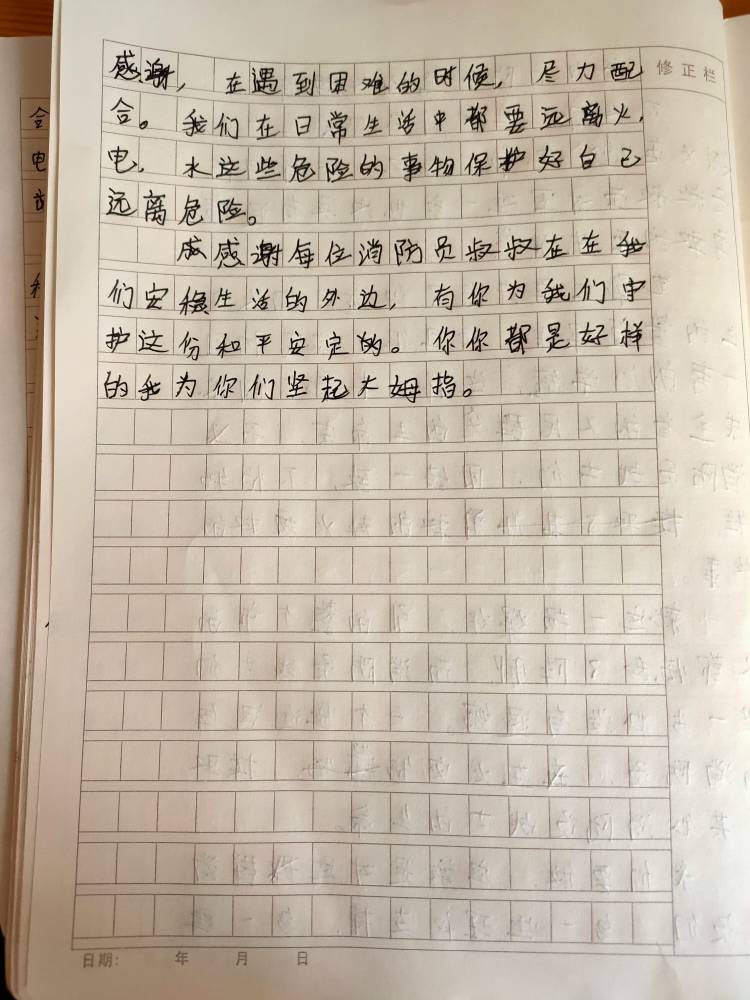 感谢，在遇到困难的时候，尽力配
合。我们在日常生活中都要远离火，
电，水这些危险的事物保护好自己
远离危险。
感感谢每位消防员叔叔在在我
们安稳生活的外边，有你为我们守
护这份和平安定的。你你都是好样
的我为你们坚起大姆指。
修正栏
日期： 年 月 日